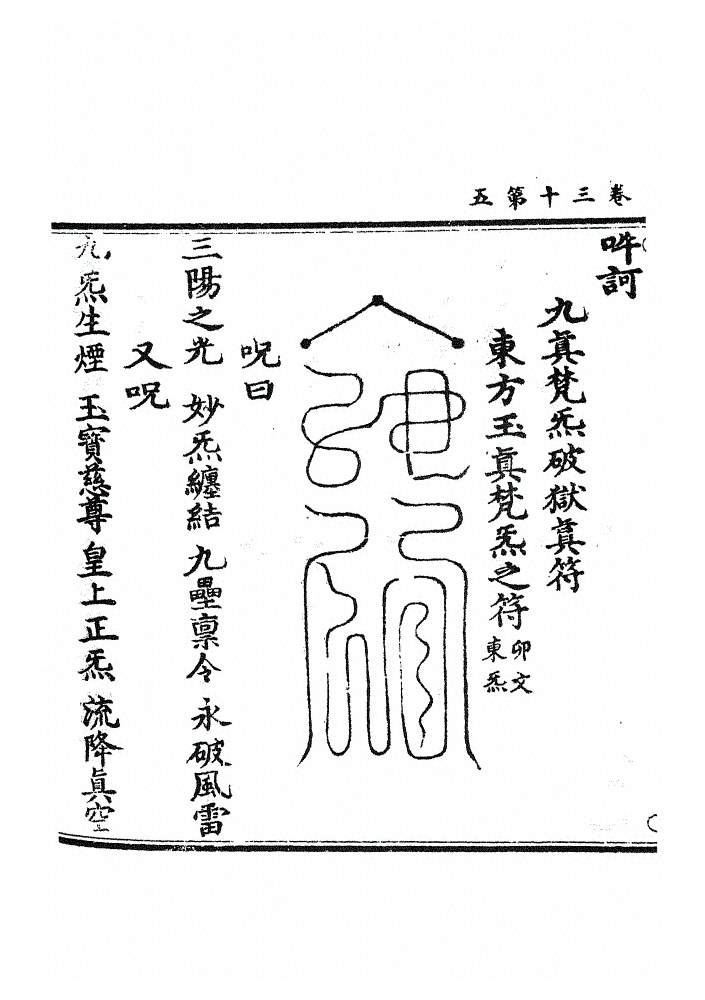 卷三十第五
吽訶
九眞梵炁破獄眞符
東方玉眞梵炁之符
卯文
東炁
呪曰
三陽之光 妙炁纏結 九壘禀令 永破風雷
又呪
九炁生煙 玉寶慈尊 皇上正炁 流降眞空